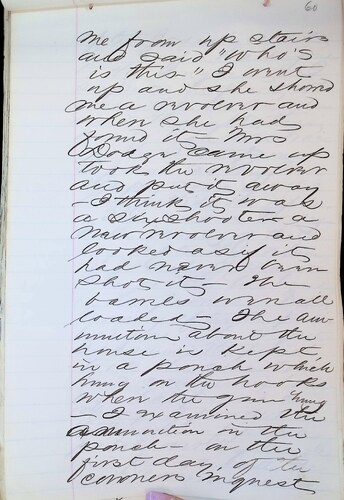 60
me from up stairs
and said "Who's
is this" I went
up and she showed
me a revolver and
when she had
found it - Mrs
Dodge came up
took the revolver
and put it away
- I think it was
a six shooter - a
new revolver and
looked as if it
had never been
shot it - The
barrels were all
loaded - The am
munition about the
house is kept
in a pouch which
hung on the hooks
when the gun hung
- I examined the
ammunition in the
pouch - on the
first day of the
coroners inquest